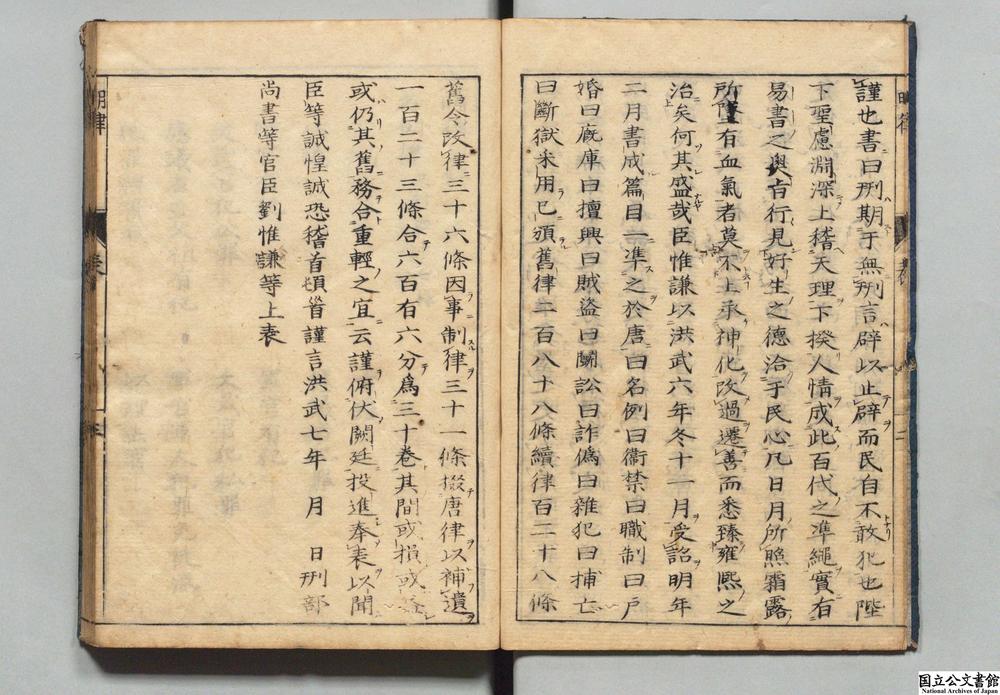 謹也書曰刑期于無刑言辟以止辟而民自不敢犯也陛
下聖慮淵深上稽天理下揆人情成此百代之準繩實有
易書之奥㫖行見好生之德洽于民心凡日月所照霜露
所墜有血氣者莫不上承神化改過遷善而悉臻雍熙之
治矣何其盛哉臣惟謙以洪武六年冬十一月受詔明年
二月書成篇目一準之於唐曰名例曰衛禁曰職制曰戶
婚曰廐庫曰擅興曰賊盜曰鬪訟曰詐僞曰雜犯曰捕亡
曰斷獄采用已頒舊律二百八十八條續律百二十八條
舊令改律三十六條因事制律三十一條掇唐律以補遺
一百二十三條合六百有六分爲三十卷其間或損或益
或仍其舊務合重輕之宜云謹俯伏闕廷投進奉表以聞
臣等誠惶誠恐稽首頓首謹言洪武七年 月 日刑部
尚書等官臣劉惟謙等上表
明律 表
国立公文書館
National Archives of Japan